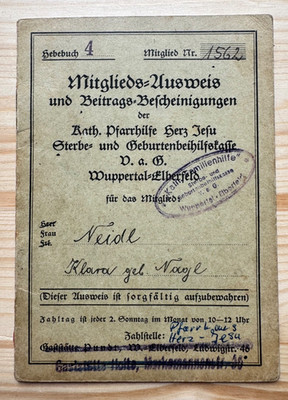 Hebebuch 4 Mitglied Nr. 1562
Mitglieds-Ausweis
und Beitrags-Bescheinigungen
der
Kath. Pfarrhilfe Herz Jesu
Sterbe- und Geburtenbeihilfekasse
V. a. G.
Wuppertal-Elberfeld
für das Mitglied:
"Kath. Familienhilfe"
Sterbe- und
Geburtenbeihilfekasse
V a G
Wuppertal-Elberfeld
Herr
Frau
Frl.
Neidl
Klara geb Nagl
(Dieser Ausweis ist sorgfältig aufzubewahren)
Zahltag ist jeder 2. Sonntag im Monat von 10–12 Uhr
Zahlstelle: Pfarrhaus
Herz-Jesu
Gaststätte W.-Elberfeld, Ludwigstr. 46
Gaststätte Holte,